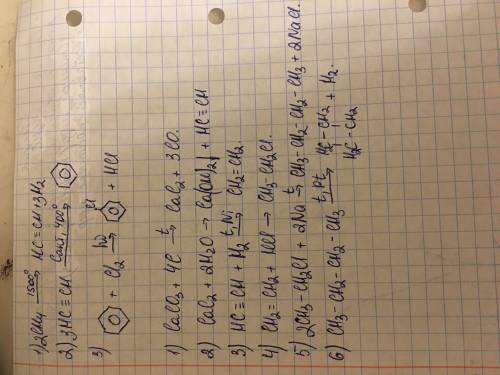 1) 2CH₄ 1500° → HC≡CH + 3H₂
2) 3HC≡CH Cакт, 400° →
3) + Cl₂ hν → Cl + HCl
1) CaCO₃ + 4C t → CaC₂ + 3CO.
2) CaC₂ + 2H₂O → Ca(OH)₂↓ + HC≡CH
3) HC≡CH + H₂ t, Ni → CH₂=CH₂.
4) CH₂=CH₂ + HCl → CH₃-CH₂Cl.
5) 2CH₃-CH₂Cl + 2Na t → CH₃-CH₂-CH₂-CH₃ + 2NaCl.
6) CH₃-CH₂-CH₂-CH₃ t, Pt → H₂C-CH₂ + H₂.
H₂C-CH₂